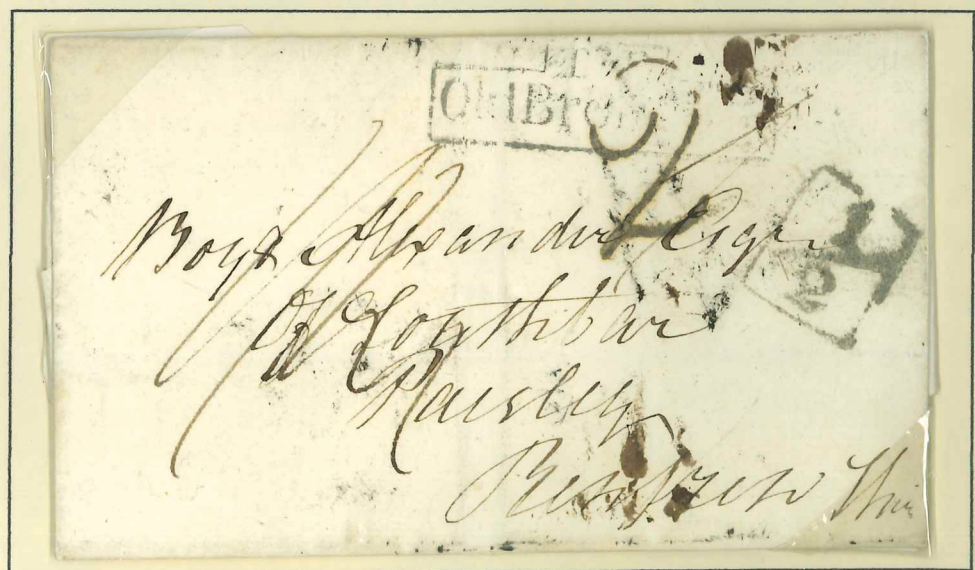 Old Bro
Boyd Alexander Esqr
Of Southbar
Paisley
Renfrew Shire
H
2